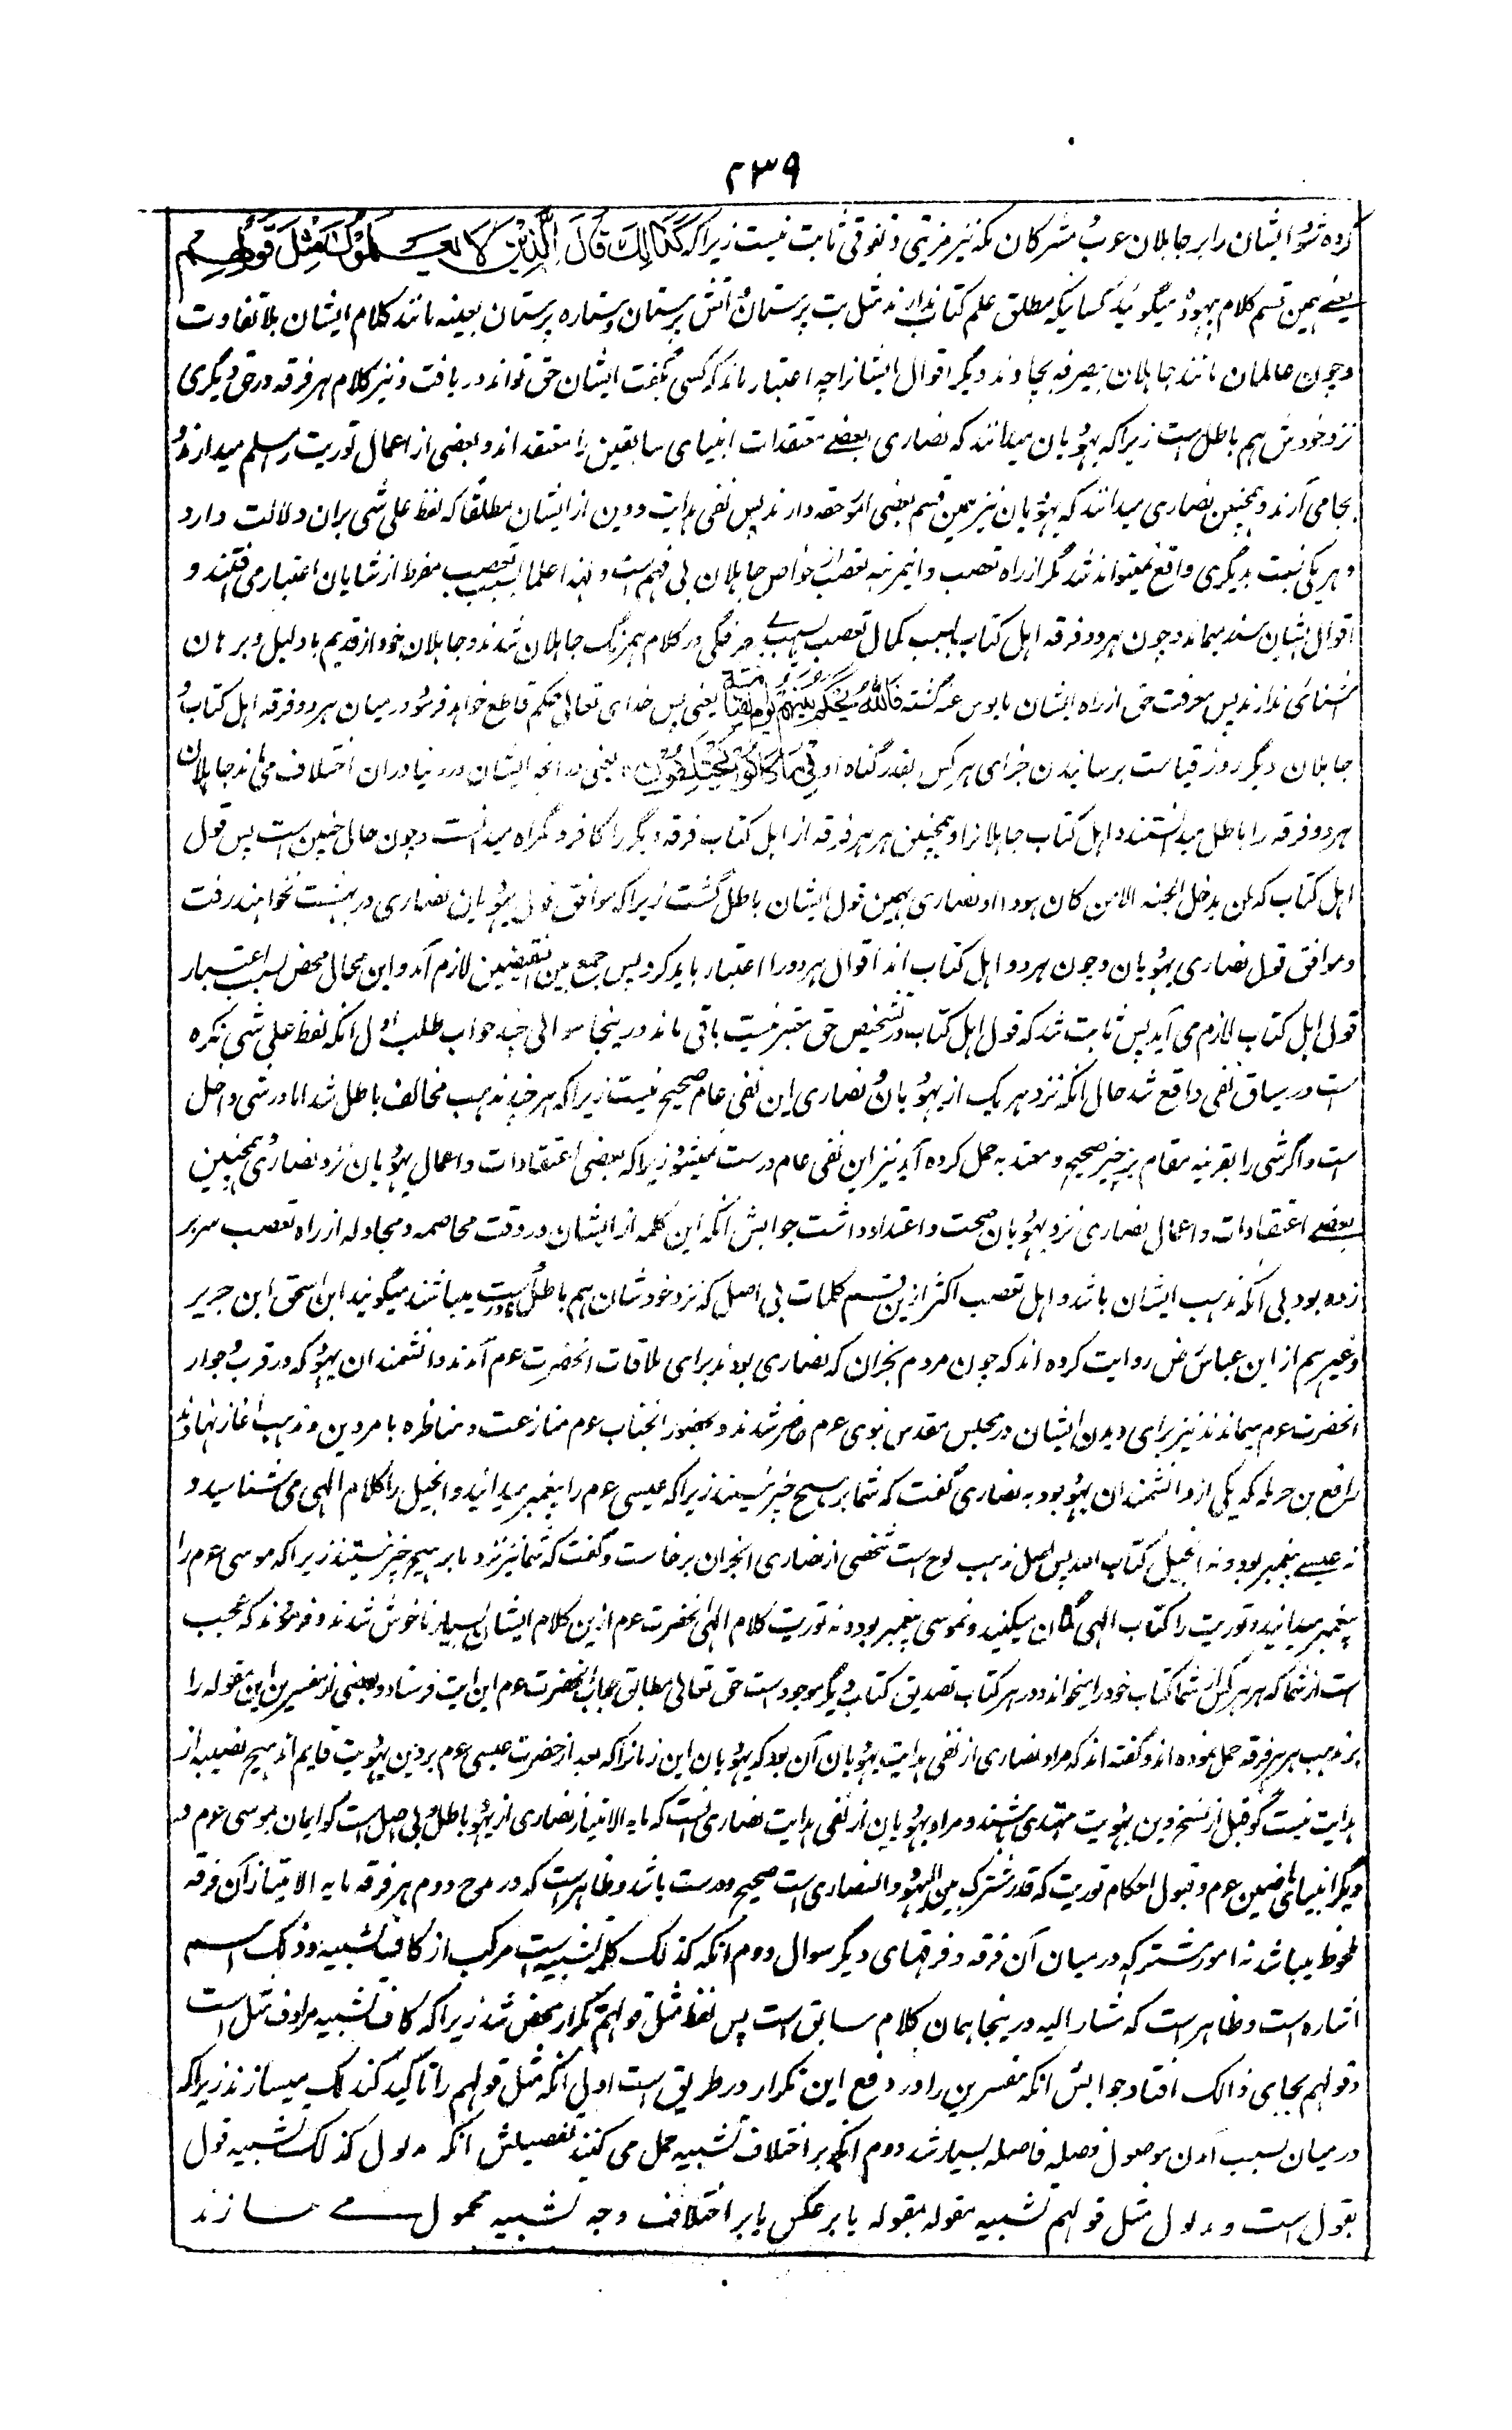 ۲۳۹
کرده شود ایشان را بر جاهلان عرب و مشرکان مکه نیز مزیتی و تفوقی ثابت نیست زیرا که كَذَالِكَ قَالَ الَّذِيْنَ لَا يَعْلَمُوْنَ مِثْلَ قَوْلِهِمْ
یعنے همین قسم کلام یهود میگویند کسانیکه مطلق علم کتاب ندارند مثل بت پرستان و آتش پرستان و ستاره پرستان بعینه مانند کلام ایشان بلا تفاوت
و چون عالمان مانند جاهلان بیصرفه بچاوند دیگر اقوال ایشانرا چه اعتبار ماند که کسی بگفت ایشان حق تواند دریافت و نیز کلام هر فرقه در حق دیگری
نزد خودش هم باطل است زیرا که یهودیان میدانند که نصاری بعضے معتقدات انبیای سابقین را معتقد اند و بعضی از اعمال توریت را مسلم میدارند و
بجا می آرند و همچنین نصاری میدانند که یهودیان نیز همین قسم بعضی امور حقه دارند پس نفی هدایت و دین از ایشان مطلقا که لفظ علی شی بران دلالت دارد
و هر یکی نسبت بدیگری واقع نمیتواند شد مگر از راه تعصب و اینمرتبه تعصب از خواص جاهلان بی فهم است و لهذا علما بسبب تعصب مفرط از شایان اعتبار می افتند و
اقوال ایشان سند نمیماند و چون هر دو فرقه اهل کتاب بسبب کمال تعصب بیهده حرفگی در کلام همرنگ جاهلان شدند و جاهلان خود از قدیم با دلیل و برهان
آشنائی ندارند پس معرفت حق از راه ایشان مایوس عنه گشته فَاللّٰهُ يَحْكُمُ بَيْنَهُمْ يَوْمَ الْقِيٰمَةِ یعنی پس خدای تعالی حکم قاطع خواهد فرمود درمیان هر دو فرقه اهل کتاب و
جاهلان دیگر روز قیامت برسانیدن جزای هر کس بقدر گناه او فِيْمَا كَانُوْا فِيْهِ يَخْتَلِفُوْنَ ه یعنی در آنچه ایشان در دنیا دران اختلاف می کردند جاهلان
هر دو فرقه را باطل میدانستند و اهل کتاب جاهلانرا و همچنین هر هر فرقه از اهل کتاب فرقه دیگر را کافر و گمراه میدانست و چون حال چنین است پس قول
اهل کتاب که لن یدخل الجنه الا من کان هودا او نصاری بهمین قول ایشان باطل گشت زیرا که موافق قول یهودیان نصاری در بهشت نخواهند رفت
و موافق قول نصاری یهودیان و چون هر دو اهل کتاب اند اقوال هر دو را اعتبار باید کرد پس جمع بین النقیضین لازم آمد و این محال محض بسبب اعتبار
قول اهل کتاب لازم می آید پس ثابت شد که قول اهل کتاب در تشخیص حق معتبر نیست باقی ماند درینجا سوالی چند جواب طلب اول آنکه لفظ علی شی نکره
است در سیاق نفی واقع شد حال آنکه نزد هر یک از یهودیان و نصاری این نفی عام صحیح نیست زیرا که هر چند مذهب مخالف باطل شد اما در شی داخل
است و اگر شی را بقرینه مقام بر چیز صحیح و معتد به حمل کرده آید نیز این نفی عام درست نمیشود زیرا که بعضی اعتقادات و اعمال یهودیان نزد نصاری و همچنین
بعضے اعتقادات و اعمال نصاری نزد یهودیان صحت و اعتداد داشت جوابش آنکه این کلمه از ایشان در وقت مخاصمه و مجادله از راه تعصب سر بر
زده بود بی آنکه مذهب ایشان باشد و اهل تعصب اکثر ازین قسم کلمات بی اصل که نزد خودشان هم باطل است میباشند میگویند ابن اسحق ابن جریر
و غیرهم از ابن عباس رض روایت کرده اند که چون مردم نجران که نصاری بودند برای ملاقات آنحضرت عوم آمدند دانشمندان یهود که در قرب و جوار
آنحضرت عوم میماندند نیز برای دیدن ایشان در مجلس مقدس نبوی عوم حاضر شدند و بحضور آنجناب عوم منازعت و مناظره بامر دین و مذهب آغاز نهادند
رافع بن حرمله که یکی از دانشمندان یهود بود به نصاری گفت که شما بر هیچ چیز نیستند زیرا که عیسی عوم را پیغمبر میدانید و انجیل را کلام الهی می شناسید و
نه عیسے پیغمبر بود و نه انجیل کتاب الله پس اصل مذهب پوچ است شخصی از نصاری نجران برخاست و گفت که شما نیز نزد ما بر هیچ چیز نیستند زیرا که موسی عوم را
پیغمبر میدانید و توریت را کتاب الهی گمان میکنید و نه موسی پیغمبر بود و نه توریت کلام الهی آنحضرت عوم ازین کلام ایشان بسیار ناخوش شدند و فرمودند که عجب
است از شما که هر هر کس از شما کتاب خود را میخواند و در هر کتاب تصدیق کتاب دیگر موجود است حق تعالی مطابق جواب آنحضرت عوم این ایت فرستاد و بعضی از مفسرین این مقوله را
بر مذهب هر هر فرقه حمل نموده اند و گفته اند که مراد نصاری از نفی هدایت یهودیان آن بود که یهودیان این زمانرا که بعد از حضرت عیسی عوم بر دین یهودیت قایم اند هیچ نصیبه از
هدایت نیست گو قبل از نسخ دین یهودیت مهتدی باشند و مراد یهودیان از نفی هدایت نصاری آنست که ما به الامتیاز نصاری از یهود باطل و بی اصل است گو ایمان بموسی عوم و
دیگر انبیای ماضیین عوم و قبول احکام توریت که قدر مشترک بین الیهود و النصاری است صحیح و درست باشد و ظاهر است که در مدح و ذم هر فرقه ما به الامتیاز آن فرقه
ملحوظ میباشد نه امور مشترکه درمیان آن فرقه و فرقهای دیگر سوال دوم آنکه کذلک کلمه تشبیه است مرکب از کاف تشبیه و ذلک اسم
اشاره است و ظاهر است که مشار الیه درینجا همان کلام سابق است پس لفظ مثل قولهم تکرار محض شد زیرا که کاف تشبیه مرادف مثل است
و قولهم بجای ذالک افتاد جوابش آنکه مفسرین را در دفع این تکرار دو طریق است اول آنکه مثل قولهم را تاکید کذلک میسازند زیرا که
درمیان بسبب آمدن موصول و صله فاصله بسیار شد دوم آنکه بر اختلاف تشبیه حمل می کنند تفصیلش آنکه مدلول کذلک تشبیه قول
بقول است و مدلول مثل قولهم تشبیه مقوله بمقوله یا بر عکس یا بر اختلاف وجه تشبیه محمول مے سازند